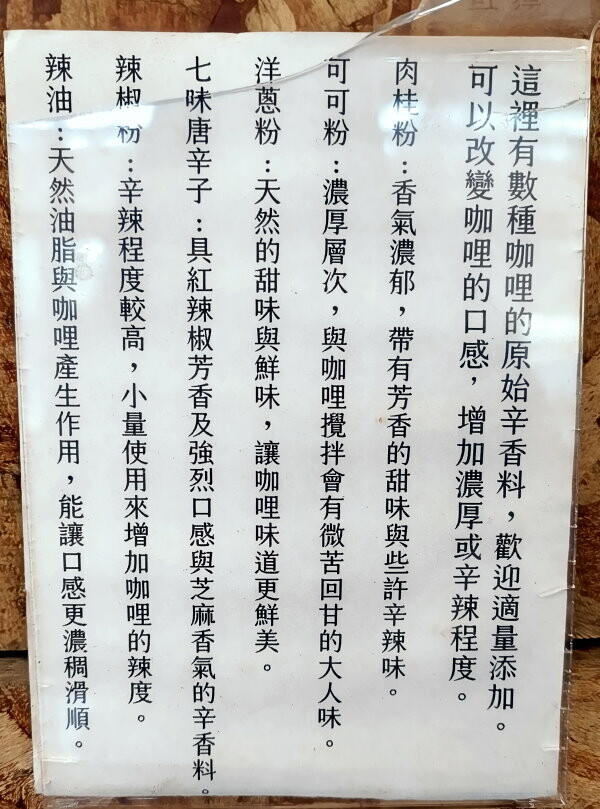 這裡有數種咖哩的原始辛香料，歡迎適量添加。
可以改變咖哩的口感，增加濃厚或辛辣程度。
肉桂粉：香氣濃郁，帶有芳香的甜味與些許辛辣味。
可可粉：濃厚層次，與咖哩攪拌會有微苦回甘的大人味。
洋蔥粉：天然的甜味與鮮味，讓咖哩味道更鮮美。
七味唐辛子：具紅辣椒芳香及強烈口感與芝麻香氣的辛香料。
辣椒粉：辛辣程度較高，小量使用來增加咖哩的辣度。
辣油：天然油脂與咖哩產生作用，能讓口感更濃稠滑順。